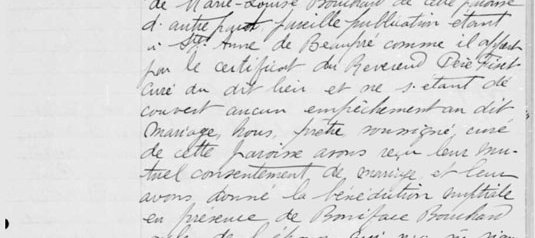 de Marie-Louise Bouchard de cette paroisse
d'autre part pareille publication étant
à Ste Anne de Beaupré comme il appert
par le certificat du Reverend Père
curé du dit lieu et ne s'étant dé
couvert aucun empêchement au dit
mariage, Nous, prêtre soussigné, curé
de cette paroisse avons reçu leur mu-
tuel consentement de mariage et leur
avons donné la bénédiction nuptiale
en présence de Boniface Bouchard
de l'épouse qui